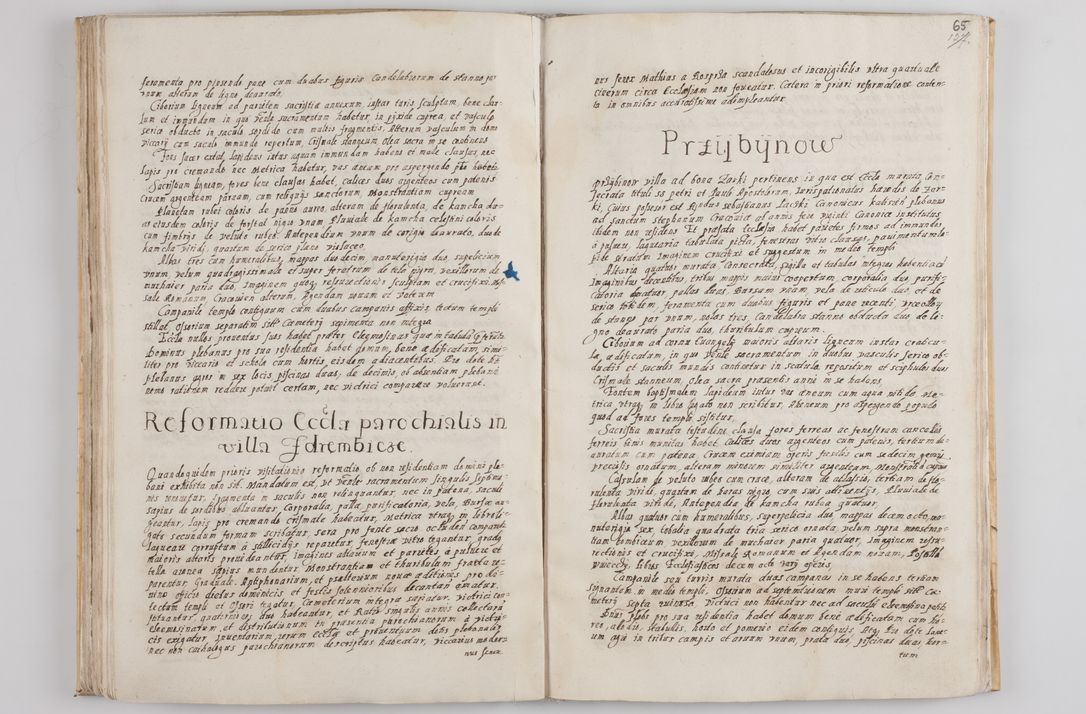 feramenta pro pinsendo pane cum duabus figuris Candelabrorum de stanno par
unum alterum de ligno deaurato.
Ciborium ligneum ad parietem sacristiæ annexum, instar turris sculptum, bene clau-
sum et immundum in quo Vener: sacramentum habetur, in pixide cuprea, et vasculo
serico obducto in saculo sordido cum multis fragmentis, Alterum vasculum in domo
vicarij cum saculo immundo repertum, Crismale stanneum olea sacra in se continens
Fons sacer extat, lapideus intus aquam immundam habens et male clausus, nec
lapis pro cremando nec Metrica habetur, vas æneum pro aspergendo
Sacristiam ligneam, fores bene clausas habet, calices duos argenteos cum patenis
Crucem argenteam paruam, cum reliquijs sanctorum, Monstrantiam cupream
Planetam rubei coloris de panno aureo, alteram de florulenta, de kamcha du-
as eiusdem coloris de forstat nigro vnam, Pluuiale de kamcha celestini coloris
cum fimbrijs de veluto rubei. Antependium vnum de corigio deaurato, duo de
kamcha viridi, quartum de serico plano violaceo.
Albas tres cum humeralibus, mappas duodecim, manutergia duo, supelicium
vnum, velum quadragissimale et super feretrum de tela nigra, vexillorum de
muchaier paria duo, Imaginem quoq resurectionis sculptam et crucifixi, mis-
sale Romanum Cracouien alterum, Agendam nouam et veterem
Campanile templo contiguum cum duabus campanis affixis, tectum templi
stillat, Ossorium separatim situ Cæmeterij sepimenta non integra.
Eccla nullos prouentus suos habet præter Elemosinas quæ in tabula
Dominus plebanus pro sua residentia habet domum, bene ædificatam, simi-
liter pro viccario et schola cum hortis eisdem adiacentibus. Pro dote
plebanus agros in sex locis piscinas duas, de decimis, ob absentiam plebani
nemo rationem reddere potuit certam, nec victrici comparere voluerunt.
Reformatio Eccla parochialis in
villa Jdrembicze.
Quandoquidem prioris visitationis reformatio, ob non residentiam domini ple-
bani exhibita non sit. Mandatum est, vt Vener: sacramentum singulis septima-
nis renouetur, fragmenta in saculis non relinquantur, nec in patena, saculi
sæpius de sordibus abluantur, Corporalia, palla, purificatoria, vela, Bursæ au-
geantur, lapis pro cremando crismale habeatur, Metrica vtraq in libro li-
gato secundum formam scribatur, sera pro fonte sacro occludendi comparetur
laqueare corruptum a stillicidijs reparetur, fenestræ vitro tegantur, gradus
maioris altaris prouideantur, imagines altarium et parietes a puluere et
tella aranea sæpius mundentur. Monstrantiam et thuribulum fracta re-
parentur, Graduale, Antiphonarium, et psalterium nouæ æditionis pro di-
uino officio diebus dominicis et festis solennioribus decantari ematur,
tectum templi et Ossarij tegatur, Cæmeterium integre sæpiatur. victrici con-
stituantur, quaternos duo habeantur, et Ratio singulis annis collectarum
Elemosinarum, et distributionum in præsentia parochianorum à victri-
cis exigatur, inuentarium, rerum eccla et prouentuum dotis plebanalis
nec non cathalogus parochianorum descriptus habeatur, Viccarius moder-
nus senex

65
nus senex Mathias a Rospsza scandalosus et incorigibilis vltra quartuale
cicerum circa Ecclesiam non foueatur. Cætera in priori reformatione conten-
ta in omnibus accuratissime adimpleantur
Przijbijnow
Przibinow villa ad bona Zarki pertinens in qua est Eccla murata Con-
secrata tituli ss petri et Pauli Apostolorum, Iurispatronatus hæredis de Zar-
ki, Cuius possesor est Rndus sebastianus Lacski Canonicus plebanus
ad sanctum stephanum Cracouiæ ab annis fere viginti Canonice institutus
ibidem non residens Et præfata Ecclesia habet parietes firmos ad immundos,
à puluere, laquearia tabulata picta, fenestras vitro clausas, pauimentum
pide stratum Imaginem crucifixi et suggestum in medio templi.
Altaria quatuor murata Consecrata, sigilla et tabulas integras habentia ac
Imaginibus decentibus, tribus mappis maius coopertum, corporalia duo, purifi-
catoria quatuor pallas duas, Bursam vnam, vela de reticulo duo et de
serico totidem, feramenta cum duabus figuris et pane recenti vrceolos
de stanno par vnum, nolas tres, Candelabra stanno obducta duo de li-
gno deaurato paria duo, thuribulum cupreum.
Ciborium ad cornu Euangelij maioris altaris ligneum instar crabcu-
la, ædificatum, in quo Vener: sacramentum in duabus vasculis serico ob-
ductis et saculis mundis contectur in scatula, repositum et sciphulus duas
Crismale stanneum, olea sacra præsentis anni in se habens.
Fontem baptismalem lapideum intus vas æneum cum aqua nitida Me-
trica vtraq in libro ligato non scribitur, Aheneum pro aspegendo populo
quod ad fores templi sistitur.
Sacristia murata testudine clausa fores ferreas ac fenestram cancellis
ferreis binis munitas habet. Calices duos argenteos cum patenis, tertium de-
auratum cum patena, Crucem eximiam operis fusilis cum sedecim gemmis
preciosis ornatum, alteram minorem similiter argenteam, Monstrantia
Casulam de veluto rubeo cum cruce, alteram de atlassio, tertiam de flo-
rulenta viridi, quartam de haras nigro cum suis attinentijs, Pluuiale de
florulenta viride, Antependia de kamcha rubea quatuor.
Albas quatuor cum humeralibus, superpelicia duo, mappas decem octo, ma-
nutergia sex, tobalea quadrata tria serico ornata, velum supra monstran-
tiam bombiceum, vexillorum de muchaier paria quatuor, Imaginem resu-
rectionis et crucifixi, Missale Romanum et Agendam nouam, Postilla
, libros Ecclesiasticos decem octo varij operis,
Campanile seu turris murata duas campanas in se habens tertiam
signandum in medio templi, Ossarium ad septemtrionem muri templi situ Cæ-
meterij septa ruinosa. Victrici non habentur nec ad saculu Elemosina petita
Dnus Plebs pro sua residentia habet domum bene ædificatam cum ho-
reo, alodio, stabulis, horto et pomerio eidem contiguis sitq Pro dote laneu-
um agri in tribus campis et aruum vnum, prata duo, piscinas duas, hor-
tum